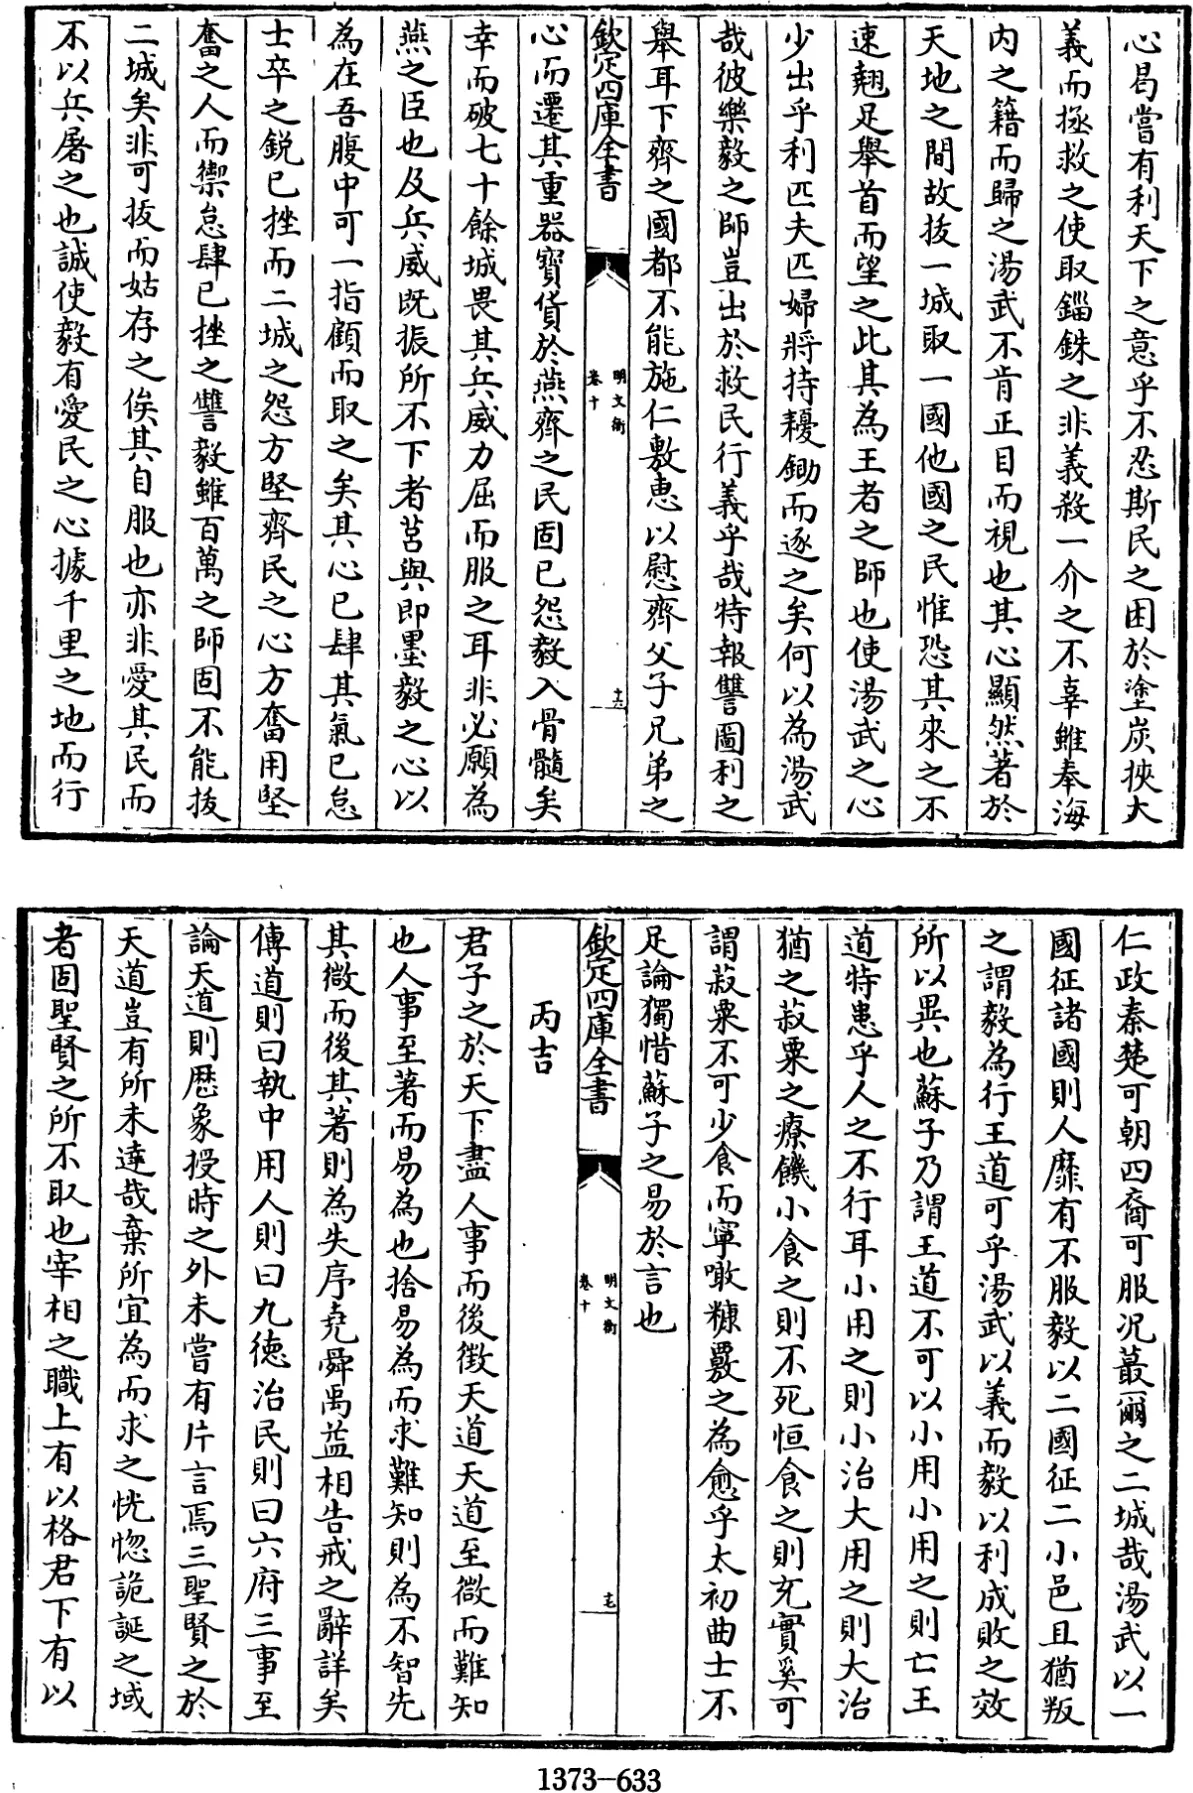 心曷嘗有利天下之意乎不忍斯民之困於塗炭挾大
義而拯救之使取錙銖之非義殺一介之不辜雖奉海
内之籍而歸之湯武不肯正目而視也其心顯然著於
天地之間故拔一城取一國他國之民惟恐其來之不
速翹足舉首而望之此其為王者之師也使湯武之心
少出乎利匹夫匹婦將持耰鋤而逐之矣何以為湯武
哉彼樂毅之師豈出於救民行義乎哉特報讐圖利之
舉耳下齊之國都不能施仁敷惠以慰齊父子兄弟之
欽定四庫全書
明文衡
卷十
十六
心而遷其重器寳貨於燕齊之民固已怨毅入骨髓矣
幸而破七十餘城畏其兵威力屈而服之耳非必願為
燕之臣也及兵威既振所不下者莒與即墨毅之心以
為在吾腹中可一指顧而取之矣其心已肆其氣已怠
士卒之鋭已挫而二城之怨方堅齊民之心方奮用堅
奮之人而禦怠肆已挫之讐毅雖百萬之師固不能拔
二城矣非可拔而姑存之俟其自服也亦非愛其民而
不以兵屠之也誠使毅有愛民之心據千里之地而行
仁政秦楚可朝四裔可服况蕞爾之二城哉湯武以一
國征諸國則人靡有不服毅以二國征二小邑且猶叛
之謂毅為行王道可乎湯武以義而毅以利成敗之效
所以異也蘇子乃謂王道不可以小用小用之則亡王
道特患乎人之不行耳小用之則小治大用之則大治
猶之菽粟之療饑小食之則不死恒食之則充實奚可
謂菽粟不可少食而寧噉糠覈之為愈乎太初曲士不
足論獨惜蘇子之易於言也
欽定四庫全書
明文衡
卷十
十七
丙吉
君子之於天下盡人事而後徴天道天道至微而難知
也人事至著而易為也捨易為而求難知則為不智先
其微而後其著則為失序堯舜禹益相告戒之辭詳矣
傳道則曰執中用人則曰九德治民則曰六府三事至
論天道則歴象授時之外未嘗有片言焉三聖賢之於
天道豈有所未達哉棄所宜為而求之恍惚詭誕之域
者固聖賢之所不取也宰相之職上有以格君下有以
1373-633